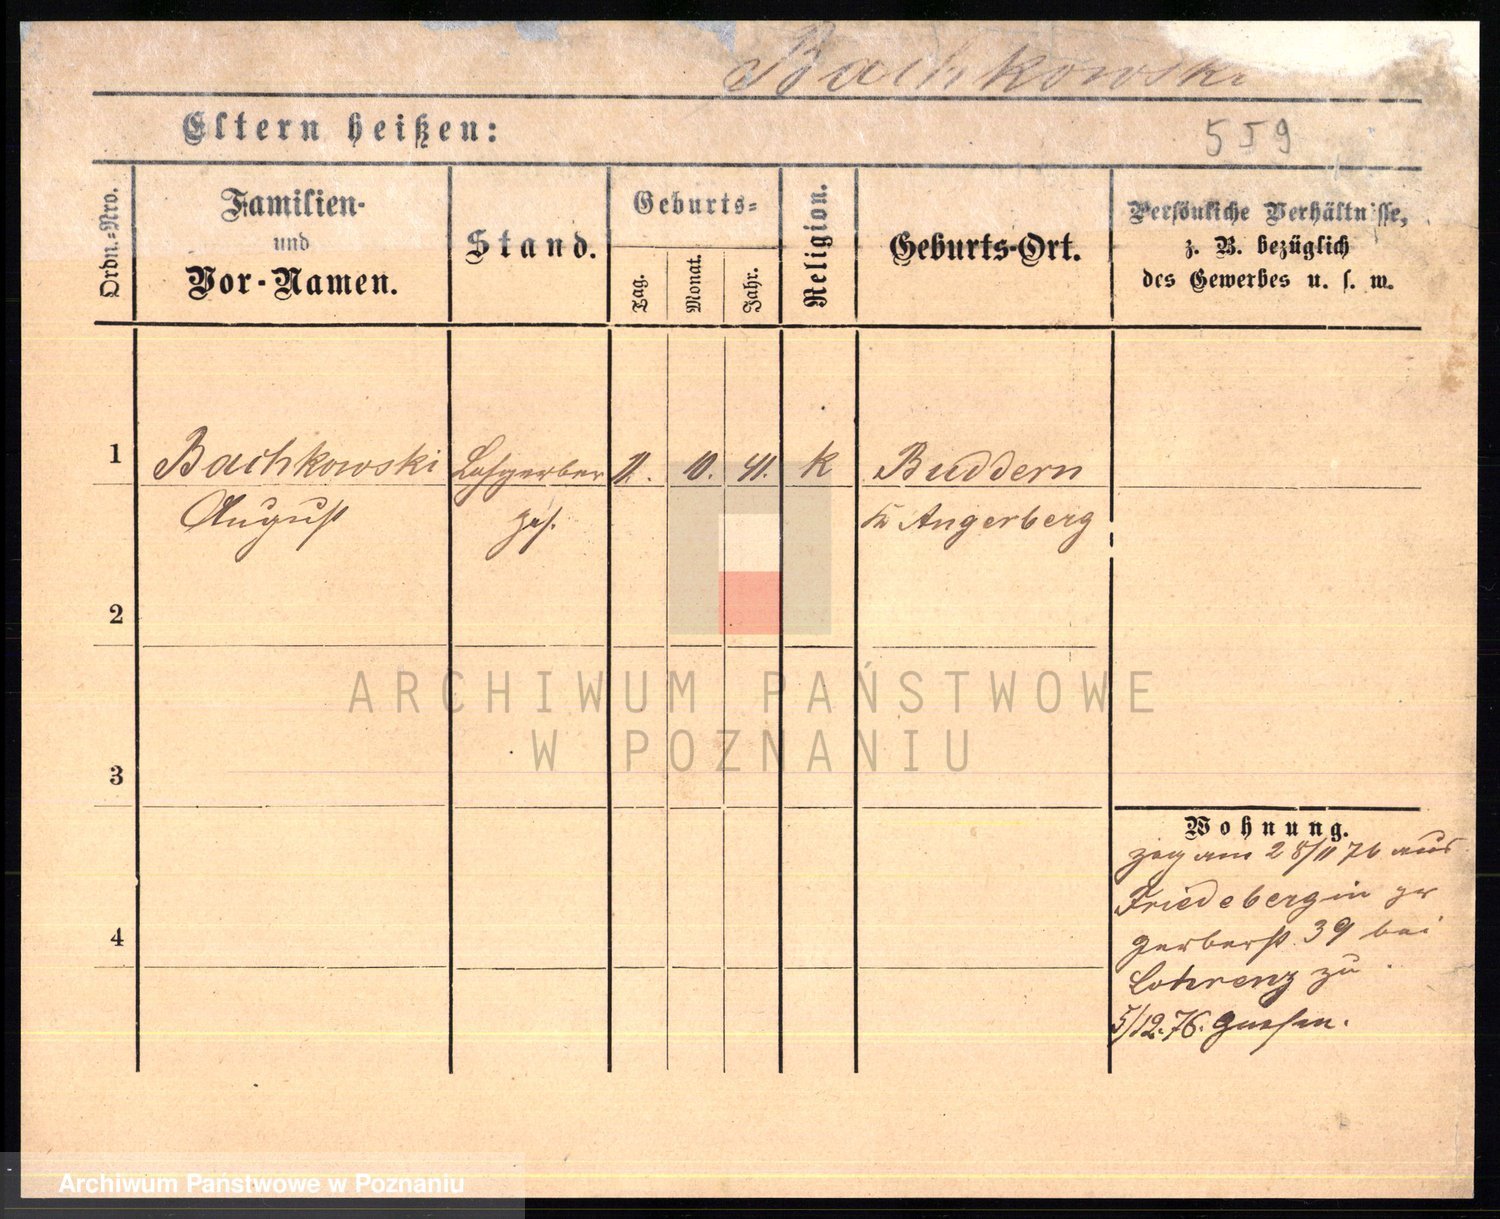 Bachkowski
Eltern heißen:
559
Ordn.-Nro.
Familien-
und
Vor-Namen.
Stand.
Geburts-
Tag.
Monat.
Jahr.
Religion.
Geburts-Ort.
Persönliche Verhältnisse,
z. B. bezüglich
des Gewerbes u. s. w.
1
Bachkowski
August
Lohgerber
ges.
11.
10.
41.
k
Buddern
Kr Angerberg
2
3
4
Wohnung.
zog am 28/11 76 aus
Friedeberg in
gerberst. 39 bei
Lohrenz zu
5/12.76. Gnesen.
ARCHIWUM PAŃSTWOWE
W POZNANIU
Archiwum Państwowe w Poznaniu